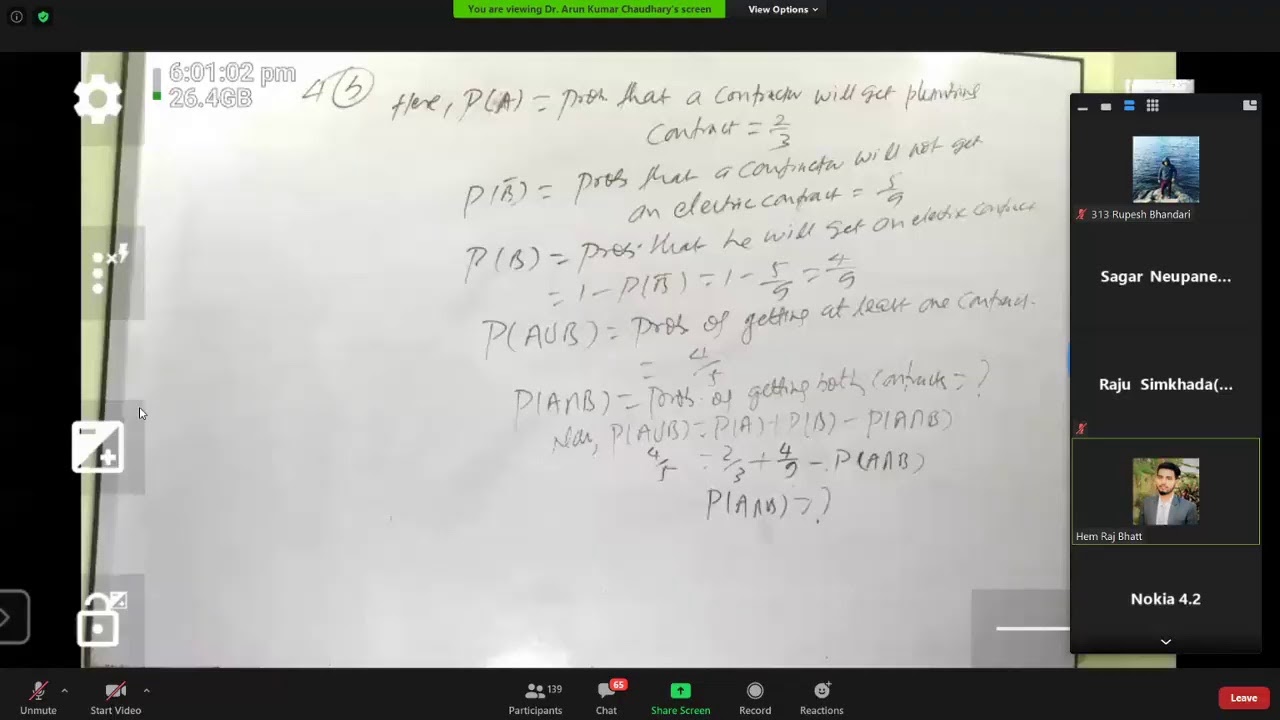 You are viewing Dr. Arun Kumar Chaudhary's screen
View Options
6:01:02 pm
26.4GB
4 (b) Here, P(A) = prob that a contractor will get plumbing
contract = 2/3
P(B̅) = prob that a contractor will not get
an electric contract = 5/9
P(B) = prob. that he will get an electric contract
= 1 - P(B̅) = 1 - 5/9 = 4/9
P(A∪B) = prob of getting at least one contract.
= 4/5
P(A∩B) = prob. of getting both contracts = ?
Now, P(A∪B) = P(A) + P(B) - P(A∩B)
4/5 = 2/3 + 4/9 - P(A∩B)
P(A∩B) = ?
313 Rupesh Bhandari
Sagar Neupane...
Raju Simkhada(...
Hem Raj Bhatt
Nokia 4.2
Unmute
Start Video
139
Participants
65
Chat
Share Screen
Record
Reactions
Leave